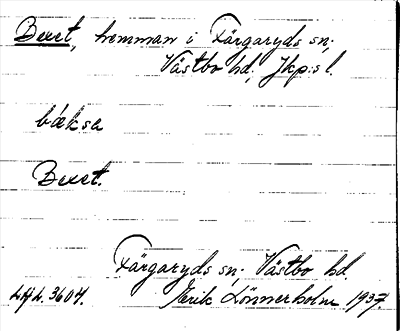 Bexet, hemman i Färgaryds sn;
Västbo hd; Jkp:s l.
bǽksa
Bexet.
Färgaryds sn; Västbo hd.
LHL. 3604. Erik Lönnerholm 1937.